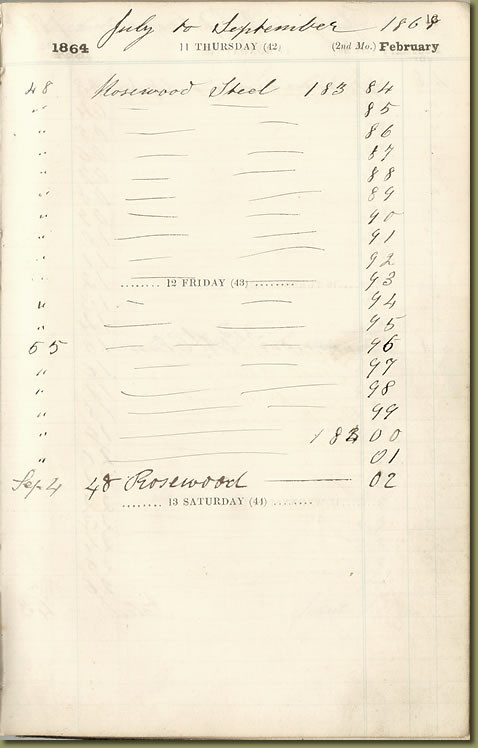 July to September 1864
1864 11 THURSDAY (42) (2nd Mo.) February
48 Rosewood Steel 183 84
" — — 85
" — — 86
" — — 87
" — — 88
" — — 89
" — — 90
" — — 91
" — — 92
" — — 93
........ 12 FRIDAY (43) ........
" — — 94
" — — 95
65 — — 96
" — — 97
" — — 98
" — — 99
" — 184 00
" — 01
Sep 4 48 Rosewood — 02
........ 13 SATURDAY (44) ........